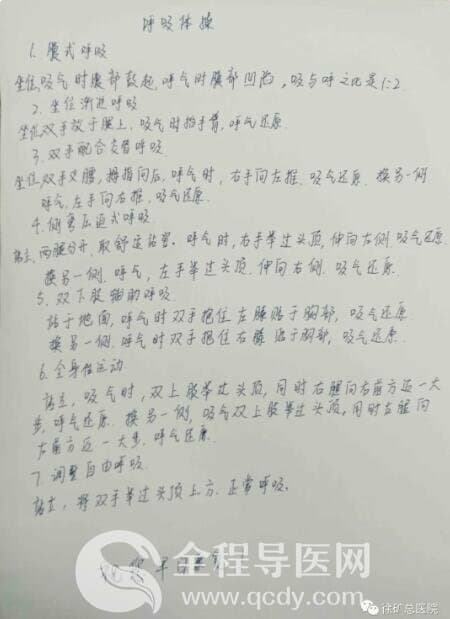 呼吸体操
1. 腹式呼吸
坐位,吸气时腹部鼓起,呼气时腹部凹陷,吸与呼之比是1:2.
2. 坐位渐进呼吸
坐位双手放于腿上,吸气时抬手臂,呼气还原.
3. 双手配合交替呼吸
坐位,双手叉腰,拇指向后,呼气时,右手向左推.吸气还原.换另一侧
呼气,左手向右推,吸气还原.
4. 侧弯压迫式呼吸
站立,两腿分开,取舒适站姿.呼气时,右手举过头顶,伸向左侧.吸气还原
换另一侧.呼气,左手举过头顶.伸向右侧.吸气还原.
5. 双下肢辅助呼吸
站于地面,呼气时双手抱住左膝贴于胸部,吸气还原
换另一侧.呼气时双手抱住右膝贴于胸部,吸气还原.
6. 全身性运动
站立,吸气时,双上肢举过头顶,同时右腿向右前方迈一大
步,呼气还原.换另一侧,吸气双上肢举过头顶,同时左腿向
左前方迈一大步.呼气还原.
7. 调整自由呼吸
站立,将双手举过头顶上方.正常呼吸。
祝您平
全程导医网
www.qcdy.com
@徐矿总医院